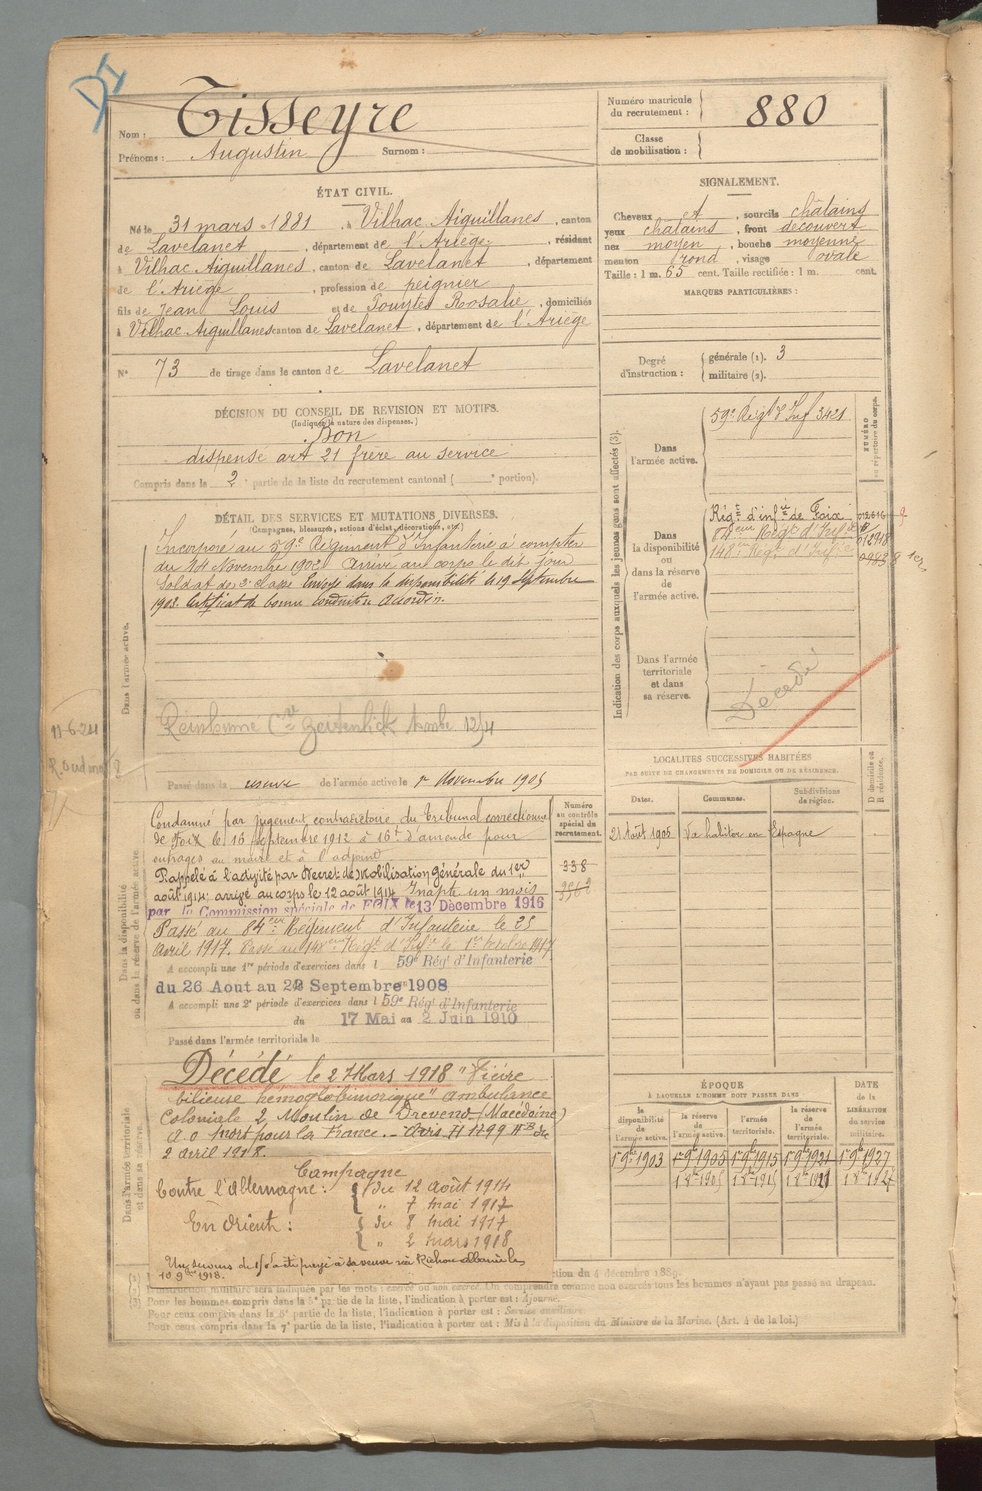 Nom : Tisseyre
Prénoms : Augustin Surnom :
Numéro matricule du recrutement : 880
Classe de mobilisation :
ÉTAT CIVIL.
Né le 31 mars 1881, à Vilhac Aiguillanes, canton
de Lavelanet, département de l'Ariège, résidant
à Vilhac Aiguillanes, canton de Lavelanet, département
de l'Ariège, profession de peignier
fils de Jean Louis et de Rosalie, domiciliés
à Vilhac Aiguillanes canton de Lavelanet, département de l'Ariège
N° 73 de tirage dans le canton de Lavelanet
SIGNALEMENT.
Cheveux et, sourcils châtains
yeux châtains, front découvert
nez moyen, bouche moyenne
menton rond, visage ovale
Taille : 1 m. 65 cent. Taille rectifiée : 1 m. cent.
MARQUES PARTICULIÈRES :
Degré d'instruction : générale (1). 3
militaire (2).
DÉCISION DU CONSEIL DE REVISION ET MOTIFS.
(Indiquer la nature des dispenses.)
Bon
dispensé art 21 frère au service
Compris dans la 2e partie de la liste du recrutement cantonal ( e portion).
DÉTAIL DES SERVICES ET MUTATIONS DIVERSES.
(Campagnes, blessures, actions d'éclat, décorations, etc.)
Dans l'armée active.
Incorporé au 59e Régiment d'Infanterie à compter
du 14 Novembre 1902. Arrivé au corps le dit jour
Soldat de 2e classe Envoyé dans la disponibilité le 19 Septembre
1903. Certificat de bonne conduite Accordé.
12/4
11-6-24
Passé dans la réserve de l'armée active le 1er Novembre 1905
Indication des corps auxquels les jeunes gens sont affectés (3).
NUMÉRO au répertoire du corps.
Dans l'armée active.
59e Régt d'Inf 3421
Dans la disponibilité ou dans la réserve de l'armée active.
Régt d'infie de Foix
84eme Régt d'Infie
148e Régt d'Infie
Dans l'armée territoriale et dans sa réserve.
Décédé
LOCALITÉS SUCCESSIVES HABITÉES
PAR SUITE DE CHANGEMENTS DE DOMICILE OU DE RÉSIDENCE.
Dates. Communes. Subdivisions de région. D domicile ou R résidence.
21 Août 1905 Va habiter en Espagne
Dans la disponibilité ou dans la réserve de l'armée active
Numéro au contrôle spécial du recrutement.
338
Condamné par jugement contradictoire du Tribunal correctionnel
de Foix le 16 Septembre 1912 à 16f d'amende pour
outrages au maire et à l'adjoint
Rappelé à l'activité par Décret de Mobilisation Générale du 1er
août 1914; arrivé au corps le 12 août 1914 Inapte un mois
par la Commission spéciale de FOIX le 13 Décembre 1916
Passé au 84eme Régiment d'Infanterie le 25
avril 1917. Passé au 148eme Régt d'Infie le 1er Octobre 1917
A accompli une 1re période d'exercices dans l 59e Rég! d'Infanterie
du 26 Aout au 22 Septembre 1908
A accompli une 2e période d'exercices dans l 59e Rég! d'Infanterie
du 17 Mai au 2 Juin 1910
Passé dans l'armée territoriale le
Dans l'armée territoriale et dans sa réserve.
Décédé le 2 Mars 1918 "Fièvre
bilieuse hémoglobinurique" ambulance
Coloniale 2, Moulin de Dreveno (Macédoine)
a.o Mort pour la France. - Avis
2 avril 1918.
Campagne
Contre l'Allemagne : du 12 août 1914
" 7 mai 1917
En Orient : du 8 mai 1917
" 2 mars 1918
10 9bre 1918.
ÉPOQUE
À LAQUELLE L'HOMME DOIT PASSER DANS
la disponibilité de l'armée active. la réserve de l'armée active. l'armée territoriale. la réserve de l'armée territoriale.
DATE de la LIBÉRATION du service militaire.
1er 9bre 1903 1er 9bre 1905 1er 9bre 1915 1er 9bre 1921 1er 9bre 1927
ction du 4 décembre 1889.
struction militaire sera indiquée par les mots : exercé ou non exercé. On comprendra comme non exercés tous les hommes n'ayant pas passé au drapeau.
(3) Pour les hommes compris dans la 5e partie de la liste, l'indication à porter est : Ajourné.
Pour ceux compris dans la 6e partie de la liste, l'indication à porter est : Service auxiliaire.
Pour ceux compris dans la 7e partie de la liste, l'indication à porter est : Mis à la disposition du Ministre de la Marine. (Art. 4 de la loi.)